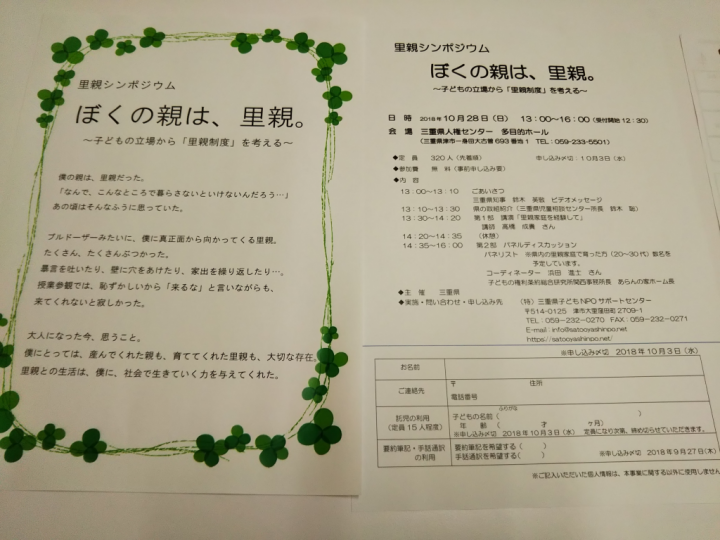 里親シンポジウム
ぼくの親は、里親。
～子どもの立場から「里親制度」を考える～
僕の親は、里親だった。
「なんで、こんなところで暮らさないといけないんだろう…」
あの頃はそんなふうに思っていた。
ブルドーザーみたいに、僕に真正面から向かってくる里親。
たくさん、たくさんぶつかった。
暴言を吐いたり、壁に穴をあけたり、家出を繰り返したり…。
授業参観では、恥ずかしいから「来るな」と言いながらも、
来てくれないと寂しかった。
大人になった今、思うこと。
僕にとっては、産んでくれた親も、育ててくれた里親も、大切な存在。
里親との生活は、僕に、社会で生きていく力を与えてくれた。
里親シンポジウム
ぼくの親は、里親。
～子どもの立場から「里親制度」を考える～
日 時 2018年10月28日（日） 13：00～16：00（受付開始 12：30）
会 場 三重県人権センター 多目的ホール
（三重県津市一身田大古曽693番地1 TEL：059-233-5501）
◆定 員 320人（先着順） 申し込み〆切：10月3日（水）
◆参加費 無 料（事前申し込み要）
◆内 容
13：00～13：10 ごあいさつ
三重県知事 鈴木 英敬 ビデオメッセージ
13：10～13：30 県の取組紹介（三重県児童相談センター所長 鈴木 聡）
13：30～14：20 第1部 講演「里親家庭を経験して」
講師 高橋 成貴 さん
14：20～14：35 （休憩）
14：35～16：00 第2部 パネルディスカッション
パネリスト ※県内の里親家庭で育った方（20～30代）数名を
予定しています。
コーディネーター 浜田 進士 さん
子どもの権利条約総合研究所関西事務所長 あらんの家ホーム長
◆主 催 三重県
◆実施・問い合わせ・申し込み先 （特）三重県子どもNPOサポートセンター
〒514-0125 津市大里窪田町2709-1
TEL：059-232-0270 FAX：059-232-0271
E-mail：info@satooyashinpo.net
https：//satooyashinpo.net/
※申し込み〆切 2018年10月3日（水）
お名前
ご連絡先 〒 住所
電話番号
託児の利用
（定員15人程度）
ふりがな
子どもの名前（ ）
年 齢（ 才 ヶ月）
※申し込み〆切 2018年10月3日（水） 定員になり次第、締め切らせていただきます。
要約筆記・手話通訳
の利用
要約筆記を希望する（ ）
手話通訳を希望する（ ） ※申し込み〆切 2018年9月27日（木）
※ご記入いただいた個人情報は、本事業に関する以外に使用しません